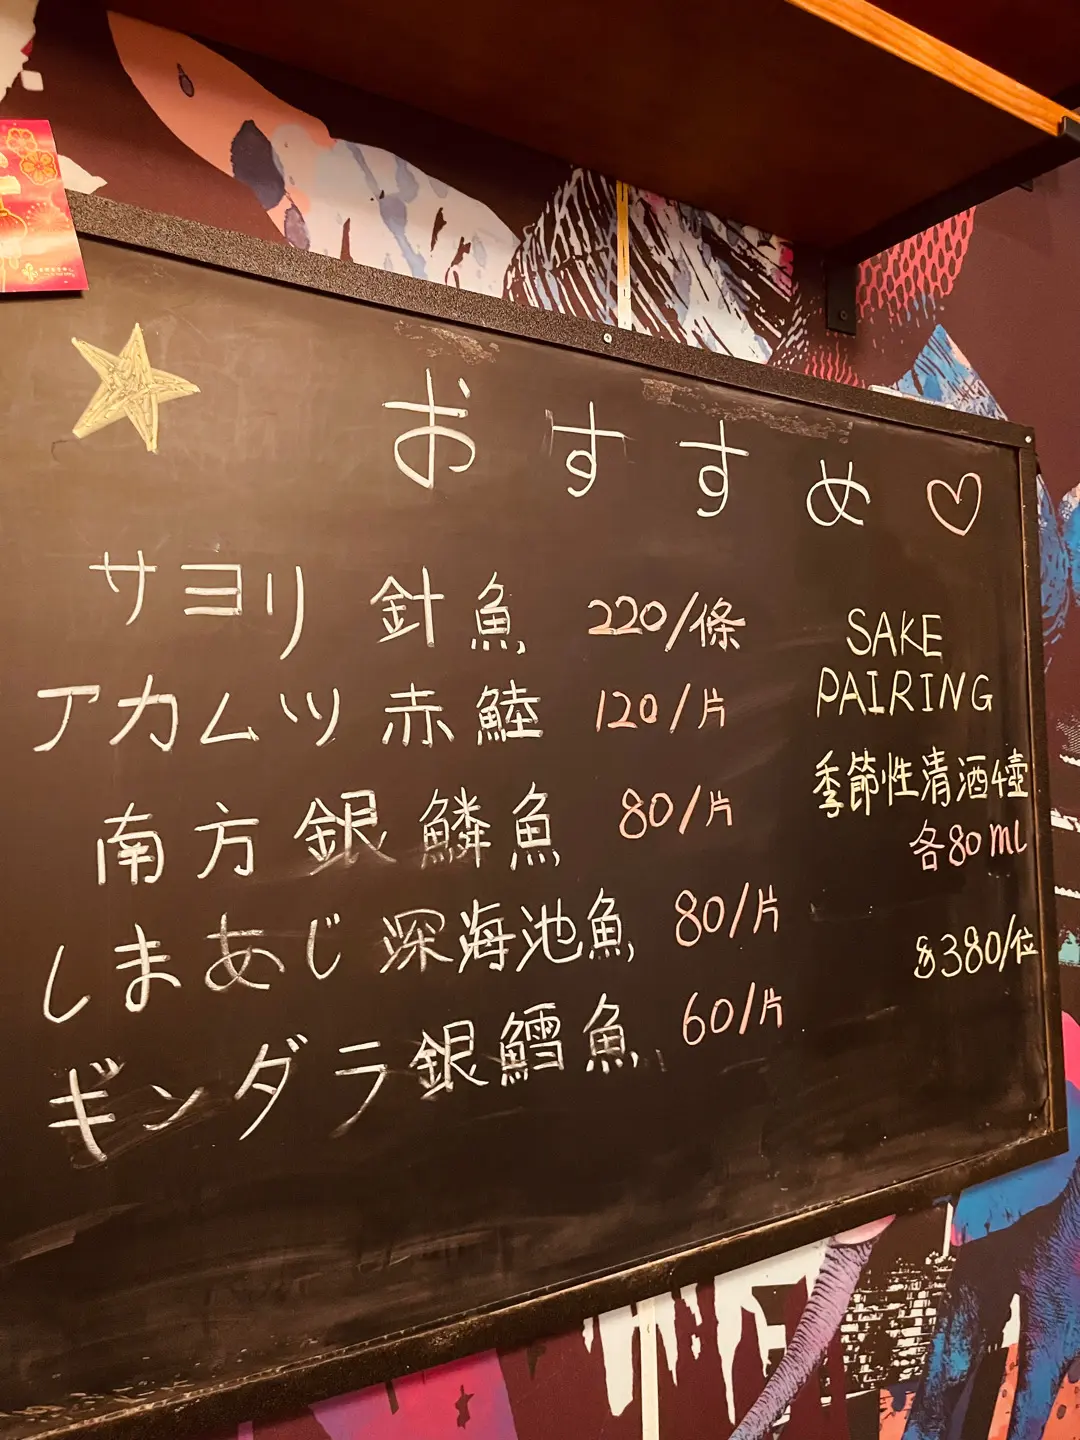 おすすめ♡
サヨリ 針魚 220/條
アカムツ 赤鯥 120/片
南方銀鱗魚 80/片
しまあじ 深海池魚 80/片
ギンダラ 銀鱈魚 60/片
SAKE
PAIRING
季節性清酒4壺
各80ml
$380/位